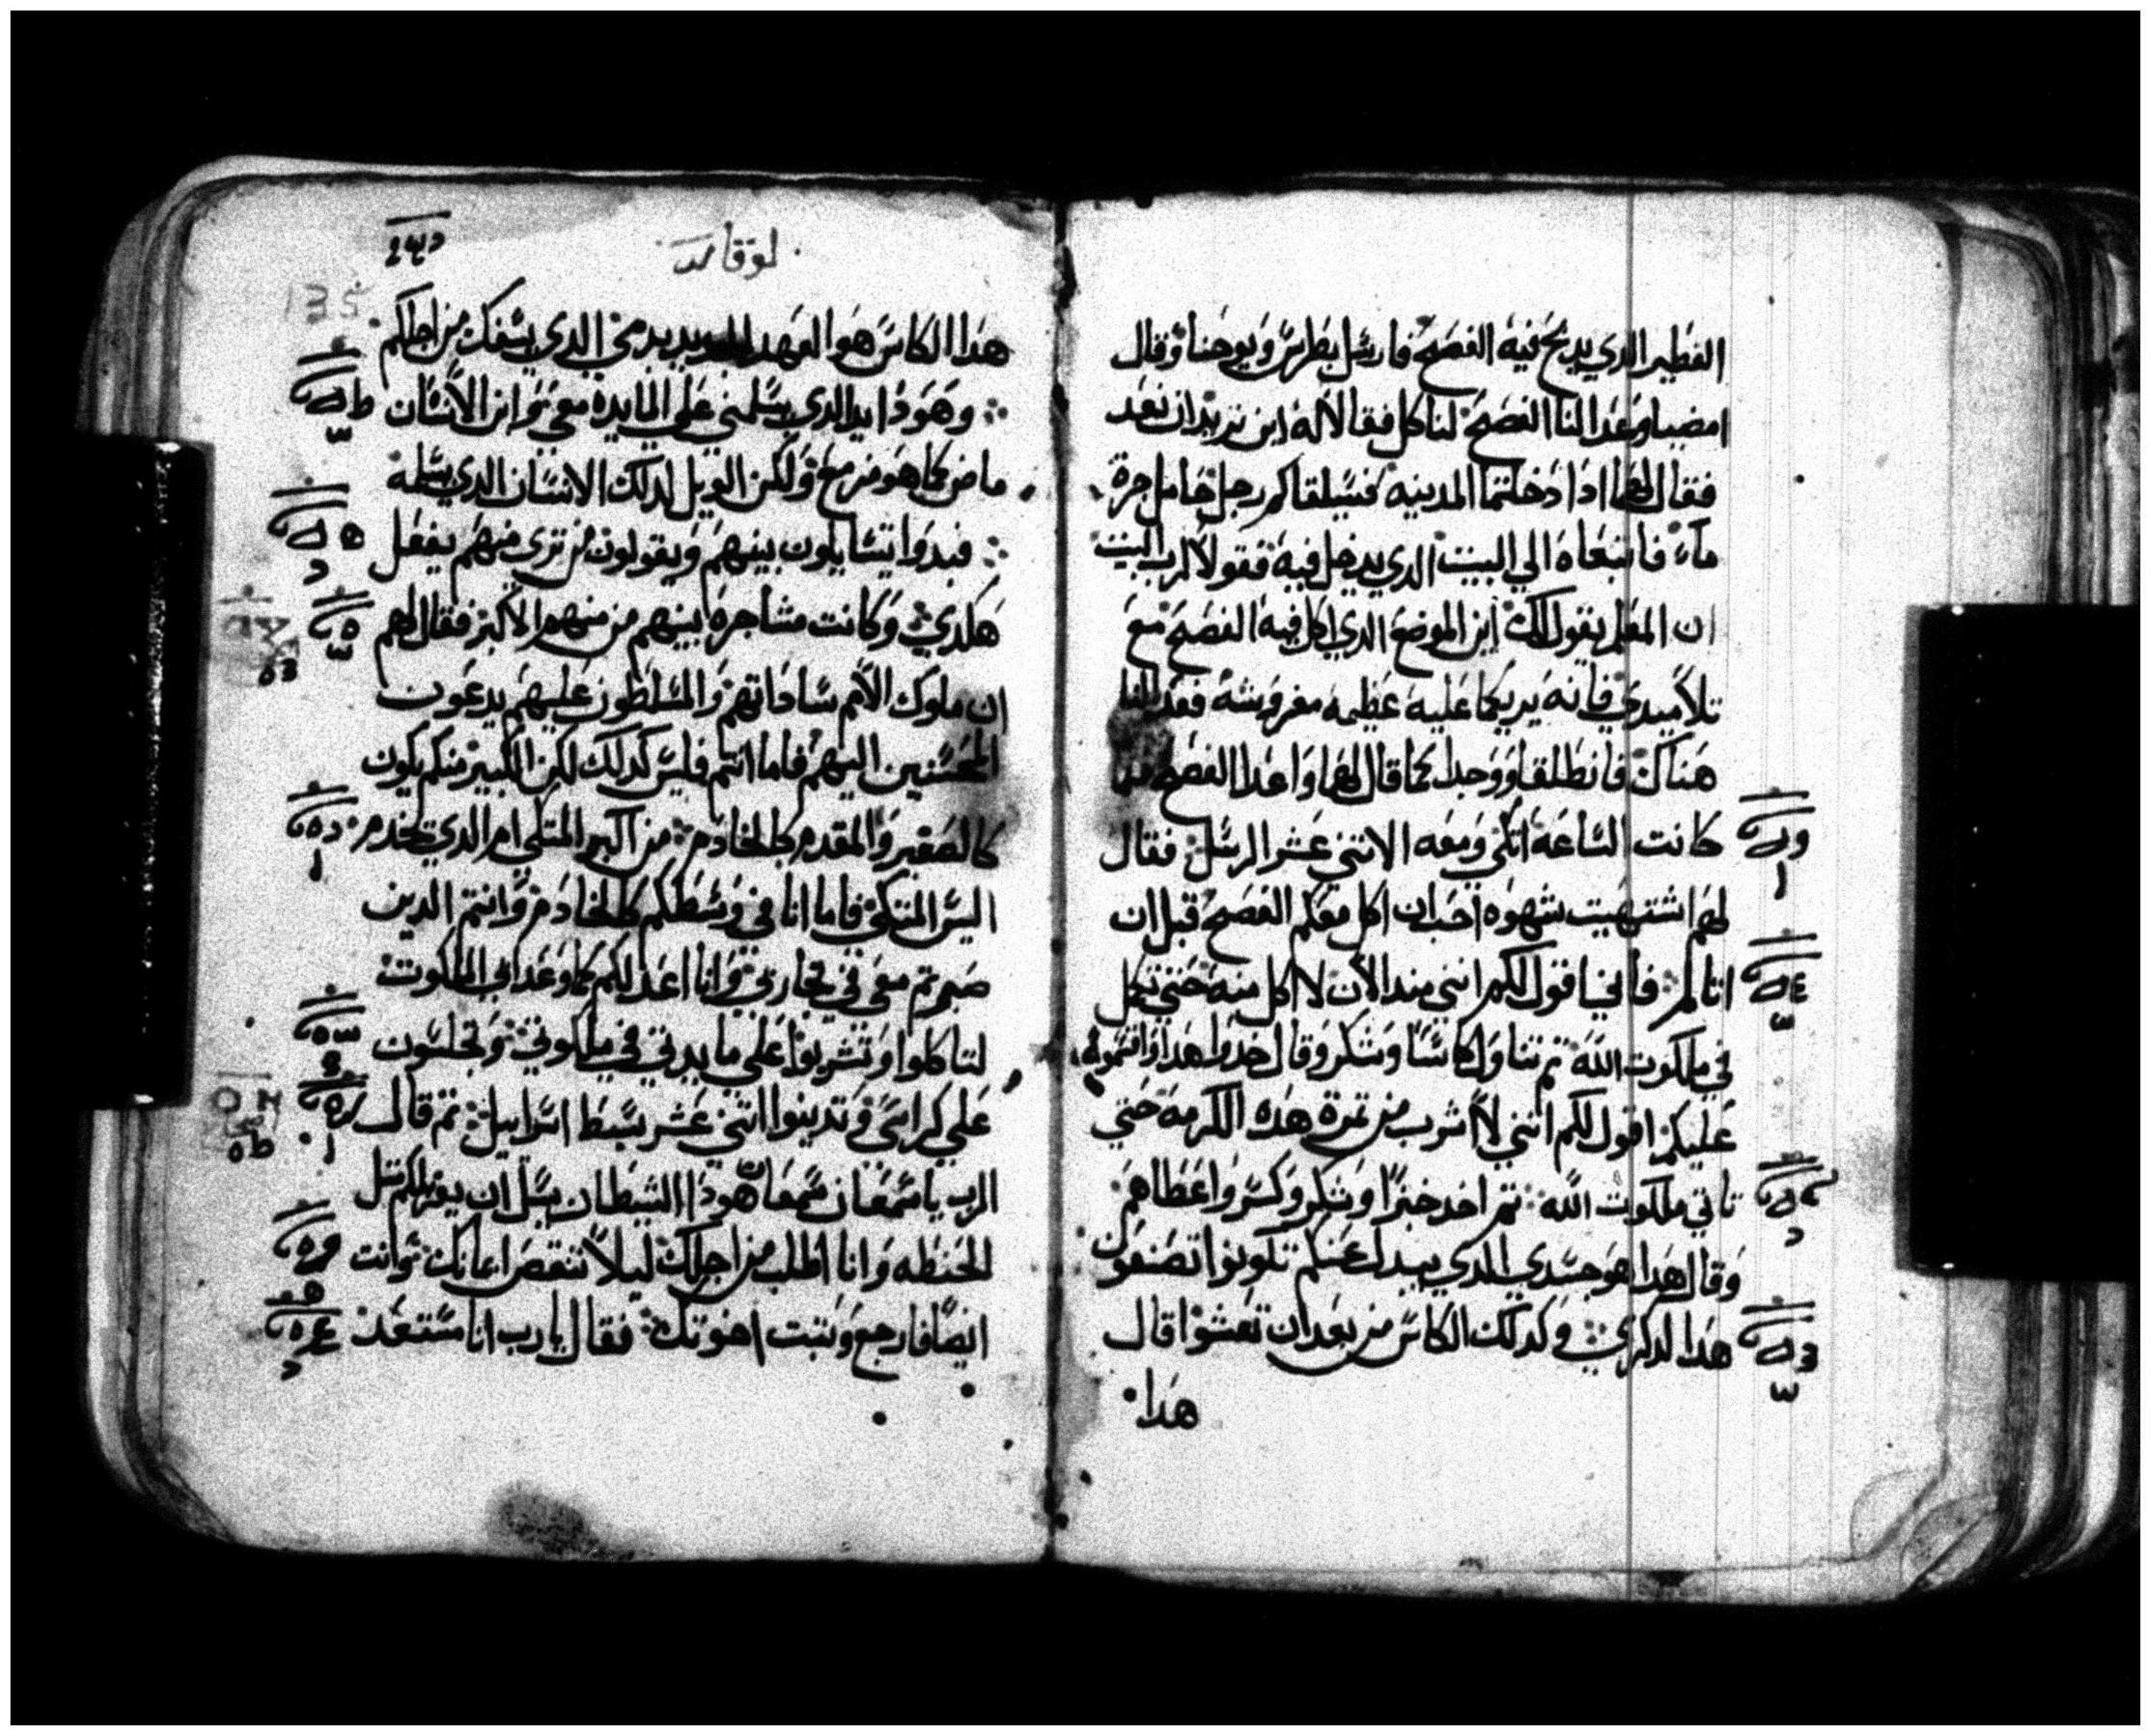 الفطير الدي يدبح فيه الفصح فارسل بطرس ويوحنا وقال
امضيا وعدا لنا الفصح لناكل فقالا له اين تريد ان نعد
فقال لهما ادا دخلتما المدينه فسيلقاكم رجل حامل جرة
ماء فاتبعاه الي البيت الدي يدخل فيه فقولا لرب البيت
ان المعلم يقول لك اين الموضع الدي اكل فيه الفصح مع
تلاميدي فانه يريكما عليه عظيمه مفروشه فعدا لنا
هناك فانطلقا ووجدا كما قال لهما واعدا الفصح فلما
كانت الساعه اتكي ومعه الاتني عشر الرسل فقال
لهم اشتهيت شهوه احب ان اكل معكم الفصح قبل ان
اتالم فاني اقول لكم انني مند الان لا اكل منه حتي تكمل
في ملكوت الله تم تناول كاسا وشكر وقال خدوا هدا واقتسموه
عليكم اقول لكم انني لا اشرب من تمرة هده الكرمه حتي
تاتي ملكوت الله تم اخد خبزا وشكر وكسر واعطاهم
وقال هدا هو جسدي الدي يبدل عنكم تكونوا تصنعون
هدا لدكري وكدلك الكاس من بعد ان تعشوا قال
هدا
لوقا
135
هدا الكاس هو العهد الجديد بدمي الدي يسفك من اجلكم
وهودا يد الدي يسلمني علي المايده معي وابن الانسان
ماض كما هو مزمع ولكن الويل لدلك الانسان الدي يسلمه
فبدوا يتسايلون بينهم ويقولون من تري منهم يفعل
هكدي وكانت مشاجره بينهم من منهم الاكبر فقال لهم
ان ملوك الامم ساداتهم والمسلطون عليهم يدعون
المحسنين اليهم فاما انتم فليس كدلك لكن الكبير منكم يكون
كالصغير والمقدم كالخادم من اكبر المتكي ام الدي يخدم
اليس المتكي فاما انا في وسطكم كالخادم وانتم الدين
صبرتم معي في تجاربي وانا اعد لكم كما وعد ابي الملكوت
لتاكلوا وتشربوا علي مايدتي في ملكوتي وتجلسون
علي كراسي وتدينوا اتني عشر سبط اسراييل تم قال
الرب يا سمعان سمعان هودا الشيطان سال ان يغربلكم متل
الحنطه وانا اطلب من اجلك ليلا تنقص امانتك وانت
ايضا فارجع وتبت اخوتك فقال يا رب انا مستعد